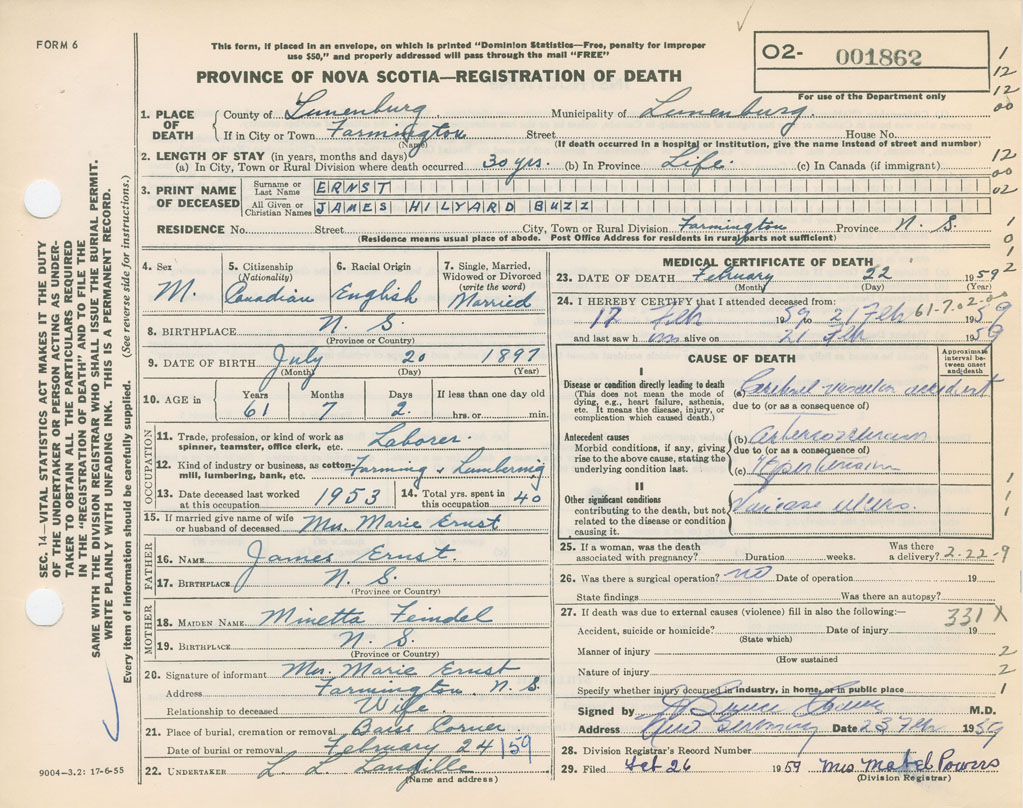 FORM 6
This form, if placed in an envelope, on which is printed "Dominion Statistics—Free, penalty for improper
use $50," and properly addressed will pass through the mail "FREE"
PROVINCE OF NOVA SCOTIA—REGISTRATION OF DEATH
O2- 001862
For use of the Department only
1
12
12
00
12
00
02
1
0
1
SEC. 14—VITAL STATISTICS ACT MAKES IT THE DUTY
OF THE UNDERTAKER OR PERSON ACTING AS UNDER-
TAKER TO OBTAIN ALL THE PARTICULARS REQUIRED
IN THE "REGISTRATION OF DEATH" AND TO FILE THE
SAME WITH THE DIVISION REGISTRAR WHO SHALL ISSUE THE BURIAL PERMIT.
WRITE PLAINLY WITH UNFADING INK. THIS IS A PERMANENT RECORD.
Every item of information should be carefully supplied. (See reverse side for instructions.)
1. PLACE OF DEATH
County of Lunenburg Municipality of Lunenburg.
If in City or Town Farmington Street House No.
(Name) (If death occurred in a hospital or institution, give the name instead of street and number)
2. LENGTH OF STAY (in years, months and days)
(a) In City, Town or Rural Division where death occurred 30 yrs. (b) In Province Life. (c) In Canada (if immigrant)
3. PRINT NAME OF DECEASED
Surname or Last Name ERNST
All Given or Christian Names JAMES HILYARD BUZZ
RESIDENCE No. Street City, Town or Rural Division Farmington Province N. S.
(Residence means usual place of abode. Post Office Address for residents in rural parts not sufficient)
4. Sex M.
5. Citizenship (Nationality) Canadian
6. Racial Origin English
7. Single, Married, Widowed or Divorced (write the word) Married
8. BIRTHPLACE N. S.
(Province or Country)
9. DATE OF BIRTH July 20 1897
(Month) (Day) (Year)
10. AGE in Years 61 Months 7 Days 2. If less than one day old hrs. or min.
OCCUPATION
11. Trade, profession, or kind of work as spinner, teamster, office clerk, etc. Laborer.
12. Kind of industry or business, as cotton-mill, lumbering, bank, etc. Farming & Lumbering
13. Date deceased last worked at this occupation 1953
14. Total yrs. spent in this occupation 40
15. If married give name of wife or husband of deceased Mrs. Marie Ernst
FATHER
16. NAME James Ernst.
17. BIRTHPLACE N. S.
(Province or Country)
MOTHER
18. MAIDEN NAME Minetta Feindel
19. BIRTHPLACE N. S.
(Province or Country)
20. Signature of informant Mrs. Marie Ernst
Address Farmington, N. S.
Relationship to deceased Wife.
21. Place of burial, cremation or removal Corner
Date of burial or removal February 24 /59
22. UNDERTAKER L. L. Langille
(Name and address)
9004—3.2: 17-6-55
MEDICAL CERTIFICATE OF DEATH
23. DATE OF DEATH February 22 1959
(Month) (Day) (Year)
2
24. I HEREBY CERTIFY that I attended deceased from:
61-7.02-00
17 Feb 1959 to 21 Feb 1959
and last saw him alive on 21 Feb 1959
CAUSE OF DEATH
Approximate interval between onset and death
I
Disease or condition directly leading to death
(This does not mean the mode of dying, e.g., heart failure, asthenia, etc. It means the disease, injury, or complication which caused death.)
(a) Cerebral vascular accident
due to (or as a consequence of)
Antecedent causes
Morbid conditions, if any, giving rise to the above cause, stating the underlying condition last.
(b)
due to (or as a consequence of)
(c) Hypertension
II
Other significant conditions
contributing to the death, but not related to the disease or condition causing it.
Varicose ulcers.
1
1
1
25. If a woman, was the death associated with pregnancy? Duration weeks. Was there a delivery? 2-22-9
26. Was there a surgical operation? no Date of operation 19
State findings Was there an autopsy?
27. If death was due to external causes (violence) fill in also the following:— 331 X
Accident, suicide or homicide? Date of injury 19
(State which)
Manner of injury 2
(How sustained)
Nature of injury 2
Specify whether injury occurred in industry, in home, or in public place 1
Signed by M.D.
Address New Germany Date 23 Feb 1959
28. Division Registrar's Record Number
29. Filed Feb 26 1959 Mrs Mabel Powers
(Division Registrar)